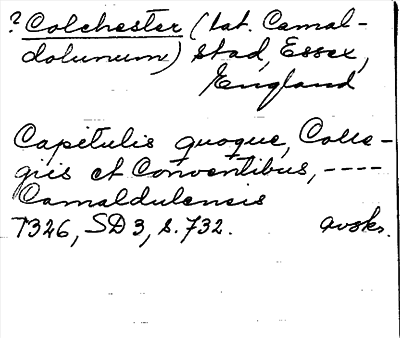 ? Colchester (Lat. Camal-
dolunum) stad, Essex,
England
Capitulis quoque, Colle-
giis et Conventibus, ----
Camaldulensis
T326, SD3, s. 732. avskr.